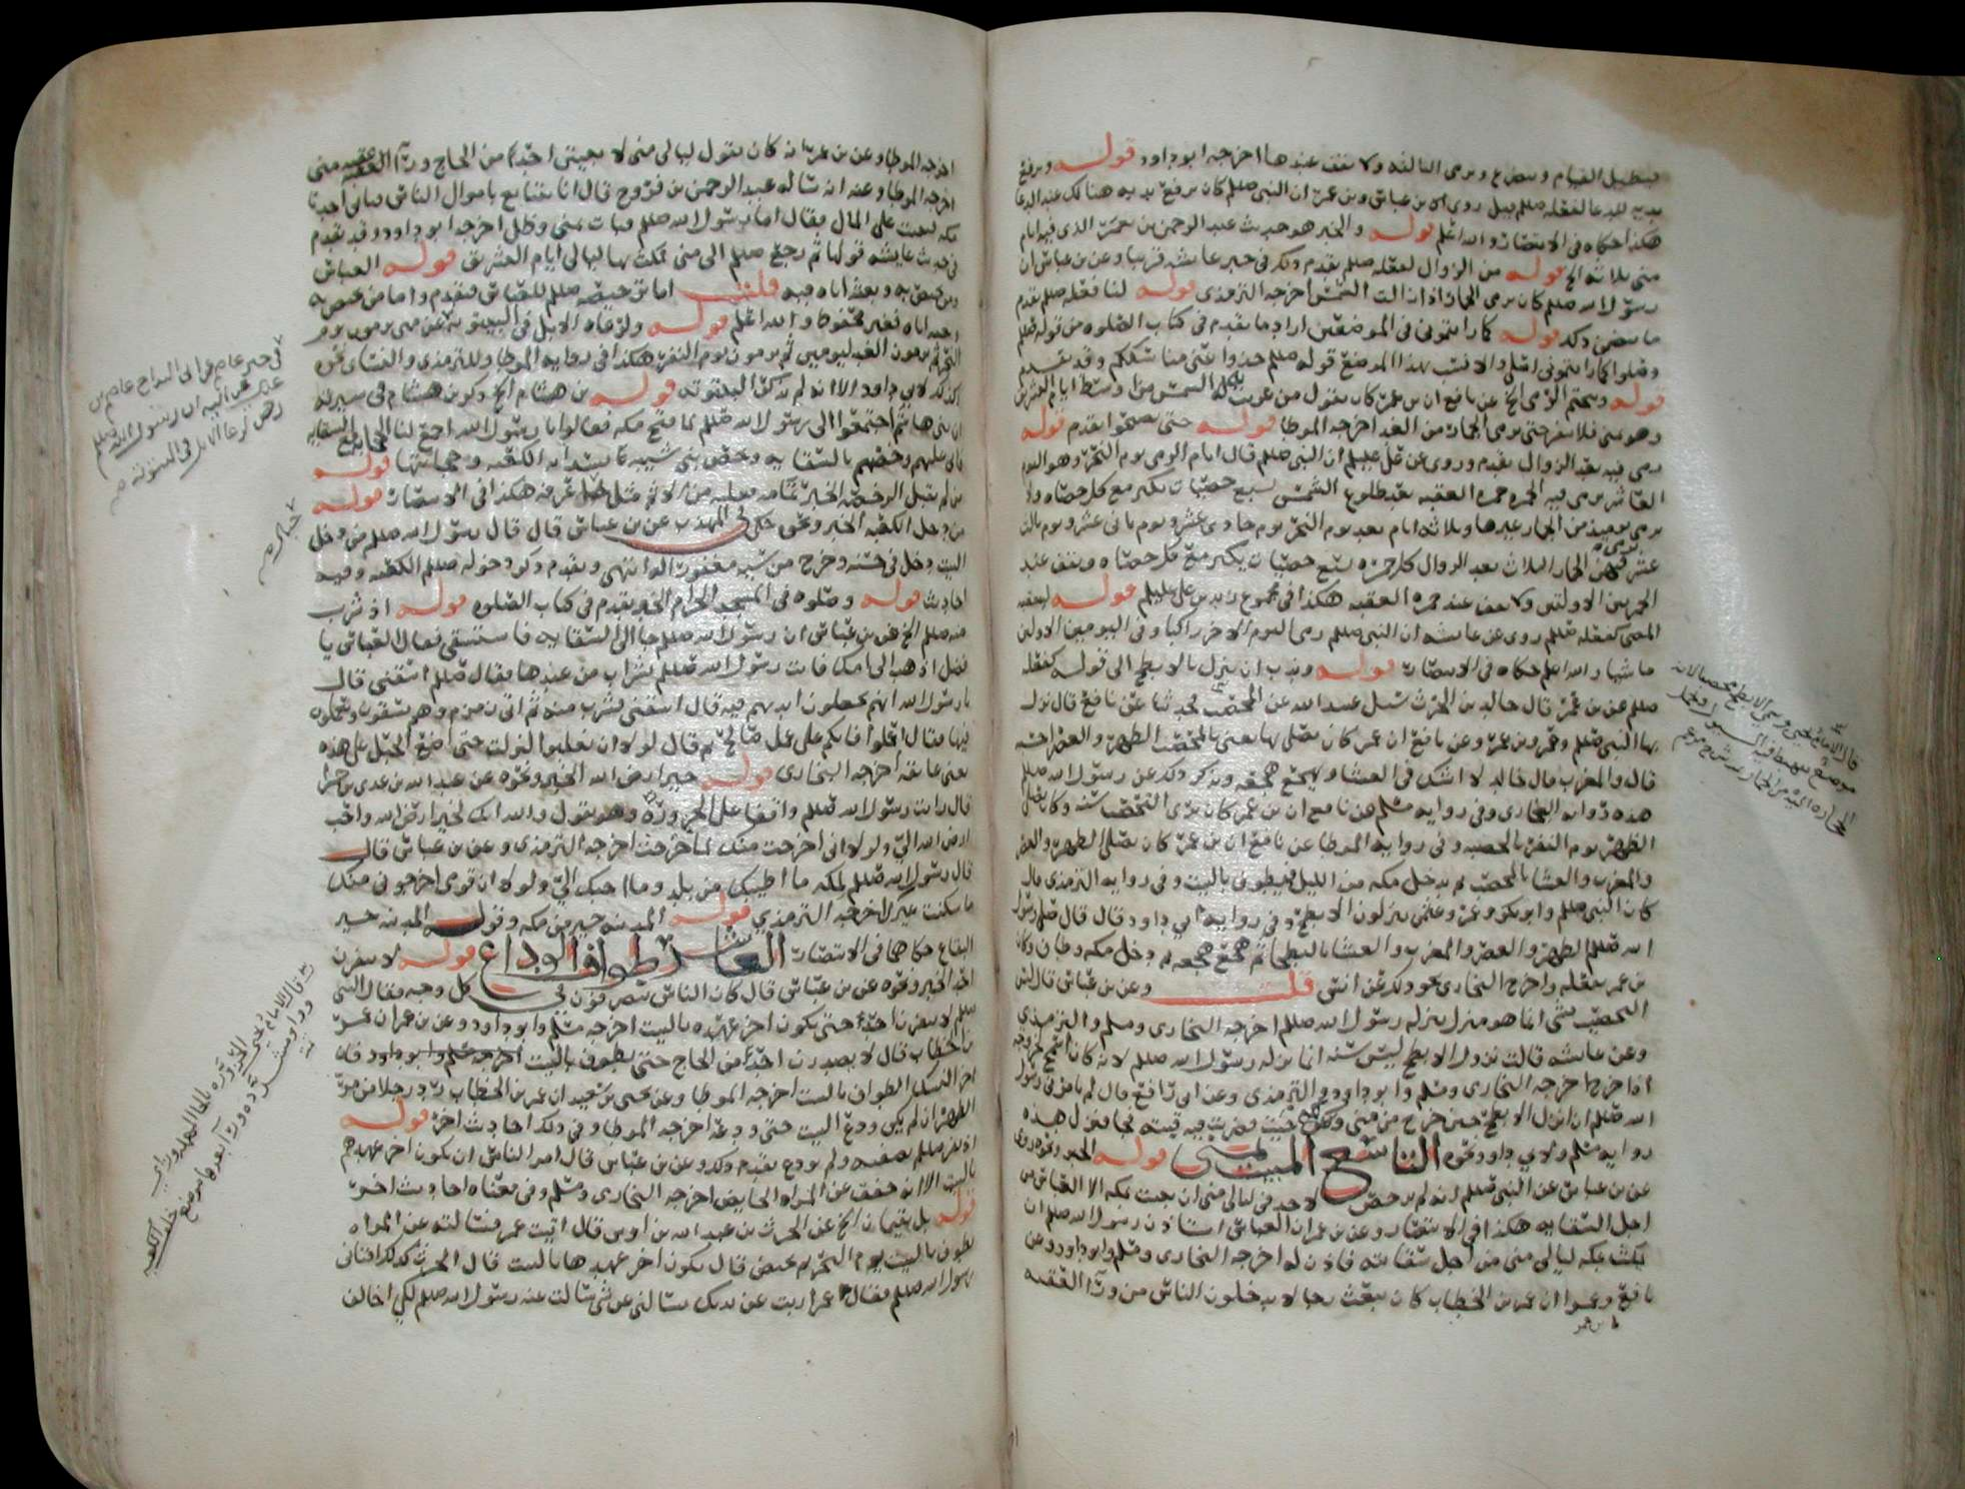 فيطيل القيام ويتضرع ويرمي الثالثه ولا يقف عندها اخرجه ابو داود قوله ويرفع
يديه للدعا لفعله صلعم قيل روى ابن عباس وبن عمر ان النبي صلعم كان يرفع يديه هنالك عند الدعا
هكذا حكاه في الانتصار والله اعلم قوله والخبر هو حديث عبد الرحمن بن يعمر الذي فيه ايام
منى ثلاثه الخ قوله من الزوال لفعله صلعم تقدم ذلك في خبر عايشه قريبا وعن بن عباس ان
رسول الله صلعم كان يرمي الجمار اذا زالت الشمس اخرجه الترمذي قوله لنا فعله صلعم تقدم
ما يقضي ذلك قوله كما رايتموني في الموضعين اراد ما تقدم في كتاب الصلوه من قوله صلعم
وصلوا كما رايتموني اصلي والانسب بهذا الموضع قوله صلعم خذوا عني مناسككم وقد تقدم
قوله ويحتم الرمي الخ عن نافع ان بن عمر كان يقول من غربت له الشمس من اوسط ايام التشريق
وهو بمنى فلا ينفر حتى يرمي الجمار من الغد اخرجه الموطا قوله حتى يصبحوا تقدم قوله
يرمي فيه بعد الزوال تقدم وروي عن علي عليلم ان النبي صلعم قال ايام الرمي يوم النحر وهو اليوم
العاشر يرمي فيه الجمره جمره العقبه بعد طلوع الشمس بسبع حصيات يكبر مع كل حصاه ولا
يرمي يوميذ من الجمار غيرها وثلاثه ايام بعد يوم النحر يوم حادي عشر ويوم ثاني عشر ويوم ثالث
عشر يرمي فيهن الجمار الثلاث بعد الزوال كل جمره بسبع حصيات يكبر مع كل حصاه ويقف عند
الجمرتين الاولتين ولا يقف عند جمره العقبه هكذا في مجموع زيد بن علي عليلم قوله
المضي كفعله صلعم روي عن عايشه ان النبي صلعم رمى اليوم الاخر راكبا وفي اليومين الاولين
ماشيا والله اعلم حكاه في الانتصار قوله وندب ان ينزل بالابطح الى قوله كفعله
صلعم عن بن عمر قال خالد بن الحرث سيل عبيد الله عن المحصب فحدثنا عن نافع قال نزل
بها النبي صلعم وعمر وبن عمر وعن نافع ان بن عمر كان يصلي بها يعني بالمحصب الظهر والعصر احسبه
قال والمغرب قال خالد لا اشك في العشا ويهجع هجعه ويذكر ذلك عن رسول الله صلعم
هذه روايه البخاري وفي روايه مسلم عن نافع ان بن عمر كان يرى التحصيب سنه وكان يصلي
الظهر يوم النفر بالحصبه وفي روايه الموطا عن نافع ان بن عمر كان يصلي الظهر والعصر
والمغرب والعشا بالمحصب ثم يدخل مكه من الليل فيطوف بالبيت وفي روايه الترمذي قال
كان النبي صلعم وابو بكر وعمر وعثمن ينزلون الابطح وفي روايه ابي داود قال قال صلى رسول
الله صلعم الظهر والعصر والمغرب والعشا بالبطحا ثم هجع هجعه ثم دخل مكه وطاف وكان
بن عمر يفعله واخرج البخاري نحو ذلك عن انس قلت وعن بن عباس قال ليس
التحصيب بشي انما هو منزل نزله رسول الله صلعم اخرجه البخاري ومسلم والترمذي
وعن عايشه قالت نزول الابطح ليس سنه انما نزله رسول الله صلعم لانه كان اسمح لخروجه
اذا خرج اخرجه البخاري ومسلم وابو داود والترمذي وعن ابي رافع قال لم يامرني رسول
الله صلعم ان انزل الابطح حين خرج من منى ولكن جيت فضربت فيه قبته فجا فنزل هذه
روايه مسلم ولابي داود نحوه التاسع المبيت بمنى قوله الخبر ونحوه روي
عن بن عباس عن النبي صلعم انه لم يرخص لاحد في ليالي منى ان يبيت بمكه الا العباس من
اجل السقايه هكذا في الانتصار وعن بن عمر ان العباس استاذن رسول الله صلعم ان
يمكث بمكه ليالي منى من اجل سقايته فاذن له اخرجه البخاري ومسلم وابو داود وعن
نافع وعمرا ان عمر بن الخطاب كان يبعث رجالا يدخلون الناس من ورآ العقبه
اخرجه الموطا وعن بن عمر انه كان يقول ليالي منى لا يبيتن احد من الحاج ورآ العقبه منى
اخرجه الموطا وعنه انه ساله عبد الرحمن بن فروخ قال انا نتبايع باموال الناس فياتي احدنا
مكه فيبيت على المال فقال اما رسول الله صلعم فبات بمنى وظل اخرجه ابو داود وقد تقدم
في حديث عايشه قولها ثم رجع صلعم الى منى فمكث بها ليالي ايام التشريق قوله العباس
ومن يختص به وبعثه اياه فيه قلت اما ترخيصه صلعم للعباس فتقدم واما من يختص به
وبعثه اياه فغير محفوظ والله اعلم قوله ولرعاه الابل في البيتوته عن منى يرمون يوم
النحر ثم يرمون الغد ليومين ثم يرمون يوم النفر هكذا في روايه الموطا وللترمذي والنسائي نحوه
كذلك لابي داود الا انه لم يذكر البيتوته قوله بن هشام الخ ذكر بن هشام في سيرته
ان بني هاشم اجتمعوا الى رسول الله صلعم لما فتح مكه فقالوا يا رسول الله اجمع لنا الحجابه مع السقايه
فابى عليهم وخصهم بالسقايه وخص بني شيبه بسدانه الكعبه وحجابتها قوله
من لم يقبل الرخصه الخبر تمامه فعليه من الاثم مثل جبل عرفه هكذا في الانتصار قوله
من دخل الكعبه الخبر ونحوه حكى في المهذب عن بن عباس قال قال رسول الله صلعم من دخل
البيت دخل في حسنه وخرج من سيه مغفورا له انتهى وتقدم ذكر دخوله صلعم الكعبه وفيه
احاديث قوله وصلوه في المسجد الحرام الخبر تقدم في كتاب الصلوه قوله اذ شرب
منه صلعم الخ عن بن عباس ان رسول الله صلعم جا الى السقايه فاستسقى فقال العباس يا
فضل اذهب الى امك فات رسول الله صلعم بشراب من عندها فقال صلعم اسقني قال
يا رسول الله انهم يجعلون ايديهم فيه قال اسقني فشرب منه ثم اتى زمزم وهم يسقون ويعملون
فيها فقال اعملوا فانكم على عمل صالح ثم قال لولا ان تغلبوا لنزلت حتى اضع الحبل على هذه
يعني عاتقه اخرجه البخاري قوله خير ارض الله الخبر ونحوه عن عبد الله بن عدي بن حمرا
قال رايت رسول الله صلعم واقفا على الحزوره وهو يقول والله انك لخير ارض الله واحب
ارض الله الي ولولا اني اخرجت منك لما خرجت اخرجه الترمذي وعن بن عباس قال
قال رسول الله صلعم لمكه ما اطيبك من بلد وما احبك الي ولولا ان قومي اخرجوني منك
ما سكنت غيرك اخرجه الترمذي قوله المدينه خير من مكه وقوله المدينه خير
البقاع حكاهما في الانتصار العاشر طواف الوداع قوله لا ينفرن
احد الخبر ونحوه عن بن عباس قال كان الناس ينصرفون في كل وجه فقال النبي
صلعم لا ينفرن احد حتى يكون اخر عهده بالبيت اخرجه مسلم وابو داود وعن بن عمر ان عمر
بن الخطاب قال لا يصدرن احد من الحاج حتى يطوف بالبيت فان
اخر النسك الطواف بالبيت اخرجه الموطا وعن يحيى بن سعيد ان عمر بن الخطاب رد رجلا من مر
الظهران لم يكن ودع البيت حتى ودعه اخرجه الموطا وفي ذلك احاديث اخر قوله
اذ نفر صلعم بصفيه ولم تودع تقدم ذلك وعن بن عباس قال امر الناس ان يكون اخر عهدهم
بالبيت الا انه خفف عن المراه الحايض اخرجه البخاري ومسلم وفي معناه احاديث اخر
قوله بل يقيمان الخ عن الحرث بن عبد الله بن اوس قال اتيت عمر فسالته عن المراه
تطوف بالبيت يوم النحر ثم تحيض قال يكون اخر عهدها بالبيت قال الحرث كذلك افتاني
رسول الله صلعم فقال عمر اربت عن يديك سالتني عن شي سالت عنه رسول الله صلعم لكي اخالف